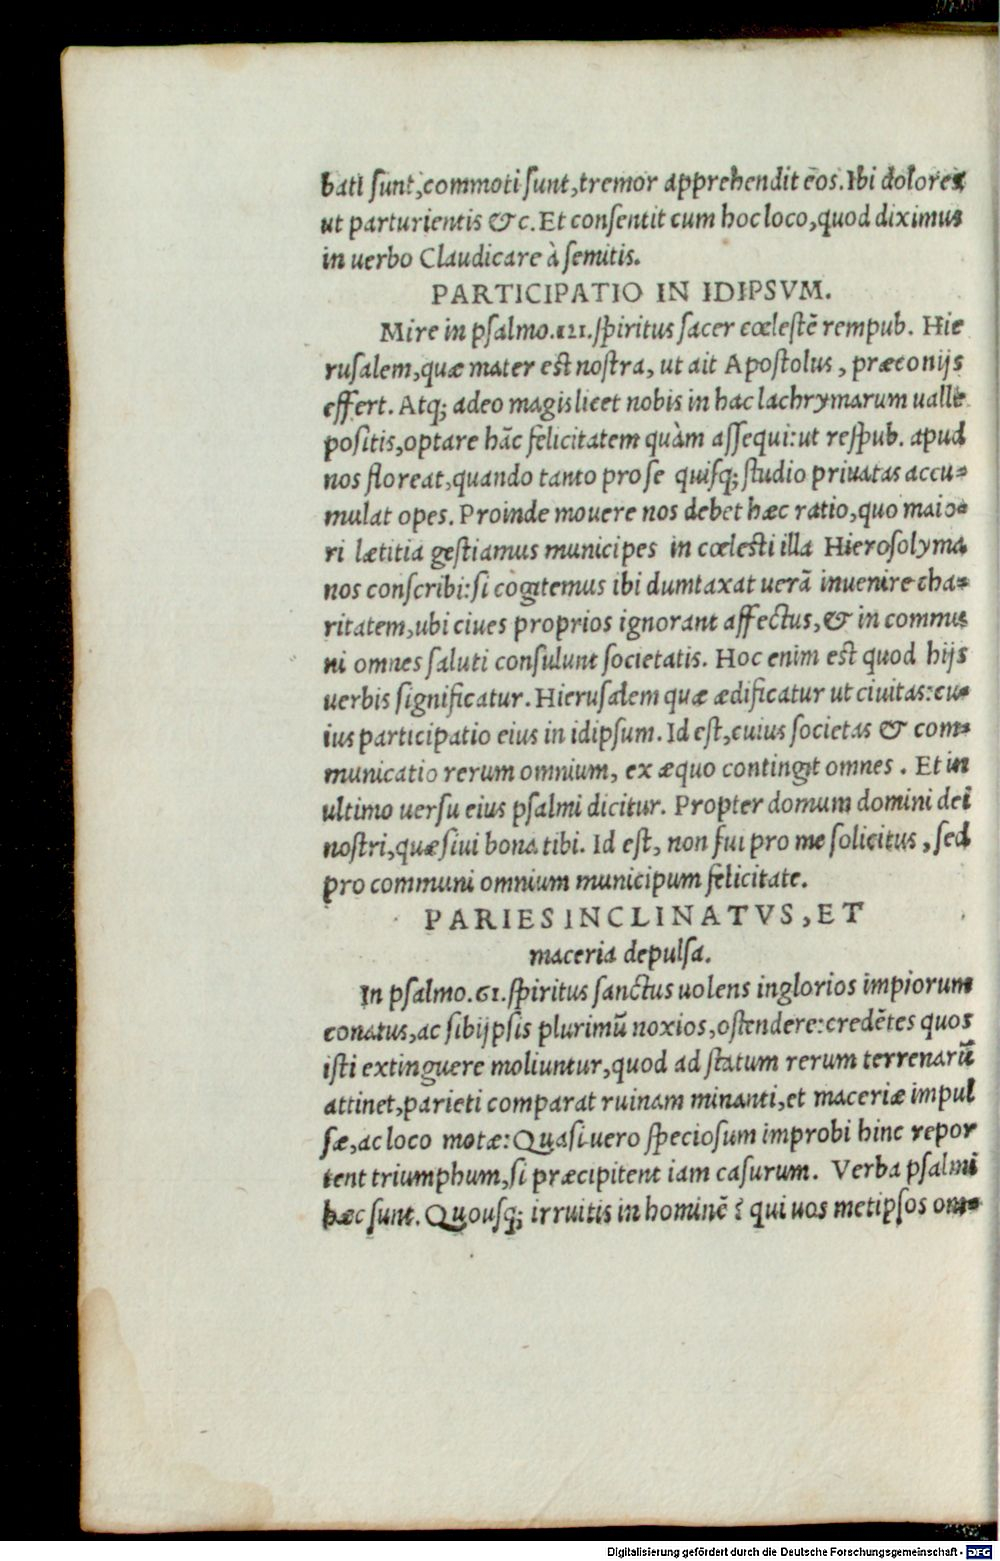 bati sunt, commoti sunt, tremor apprehendit eos. Ibi dolores
ut parturientis & c. Et consentit cum hoc loco, quod diximus
in uerbo Claudicare à semitis.
PARTICIPATIO IN IDIPSVM.
Mire in psalmo. 121. spiritus sacer cœlestē rempub. Hie
rusalem, quæ mater est nostra, ut ait Apostolus, præconijs
effert. Atq; adeo magis licet nobis in hac lachrymarum ualle
positis, optare hāc felicitatem quàm assequi: ut respub. apud
nos floreat, quando tanto pro se quisq; studio priuatas accu-
mulat opes. Proinde mouere nos debet hæc ratio, quo maio-
ri lætitia gestiamus municipes in cœlesti illa Hierosolyma
nos conscribi: si cogitemus ibi dumtaxat uerā inuenire cha-
ritatem, ubi ciues proprios ignorant affectus, & in commu
ni omnes saluti consulunt societatis. Hoc enim est quod hijs
uerbis significatur. Hierusalem quæ ædificatur ut ciuitas: cu-
ius participatio eius in idipsum. Id est, cuius societas & com-
municatio rerum omnium, ex æquo contingit omnes. Et in
ultimo uersu eius psalmi dicitur. Propter domum domini dei
nostri, quæsiui bona tibi. Id est, non fui pro me solicitus, sed
pro communi omnium municipum felicitate.
PARIES INCLINATVS, ET
maceria depulsa.
In psalmo. 61. spiritus sanctus uolens inglorios impiorum
conatus, ac sibijpsis plurimū noxios, ostendere: credētes quos
isti extinguere moliuntur, quod ad statum rerum terrenarū
attinet, parieti comparat ruinam minanti, et maceriæ impul
sæ, ac loco motæ: Quasi uero speciosum improbi hinc repor
tent triumphum, si præcipitent iam casurum. Verba psalmi
hæc sunt. Quousq; irruitis in hominē? qui uos metipsos om-
Digitalisierung gefördert durch die Deutsche Forschungsgemeinschaft - DFG